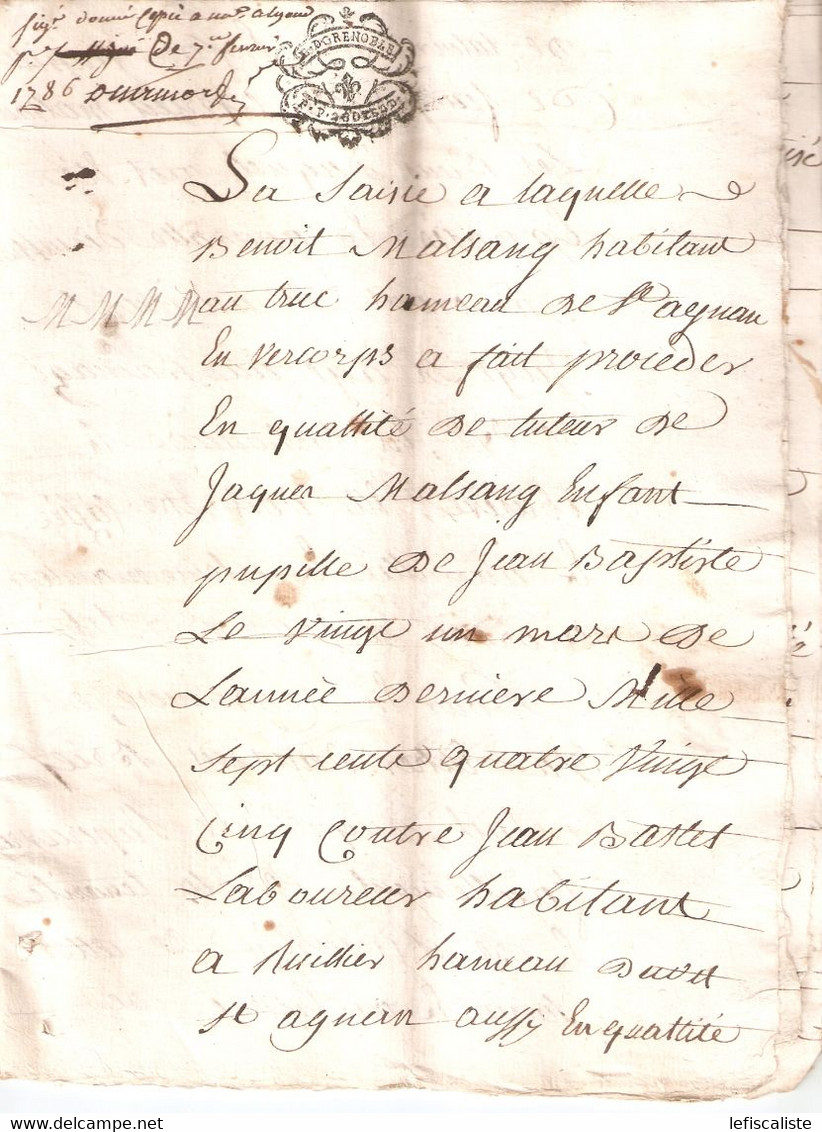 sigé donné copie a
de 7e fevrier
1786
G. D GRENOBLE
La saisie a laquelle
Benoit Malsang habitant
au truc hameau de St agnan
En vercorps a fait proceder
En quallité de tuteur de
Jaques Malsang Enfant
pupille de Jean Baptiste
Le vingt un mars de
Lannée derniere Mille
sept cents quatre vingt
Cinq Contre Jean Bastet
Laboureur habitant
a Rivillier hameau dudt
St agnan aussy En quallité
MMMM
delcampe.net
lefiscaliste